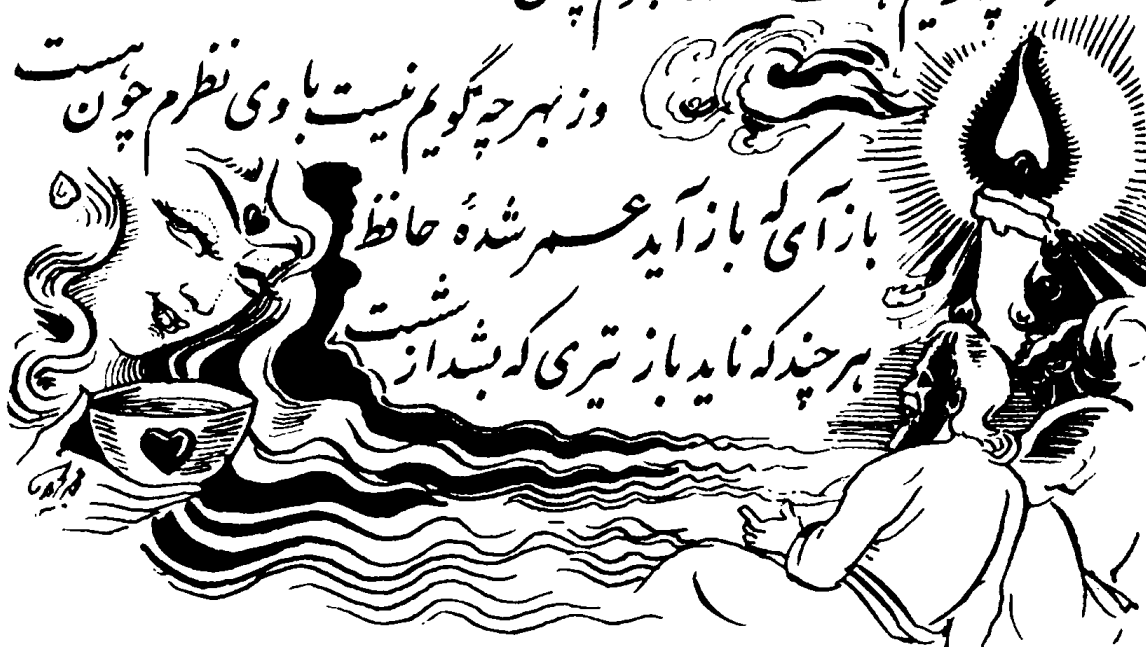 وز بهر چه گویم نیست با وی نظرم چون هست
باز آی که باز آید عمر شدهٔ حافظ
هر چند که ناید باز تیری که بشد از شست